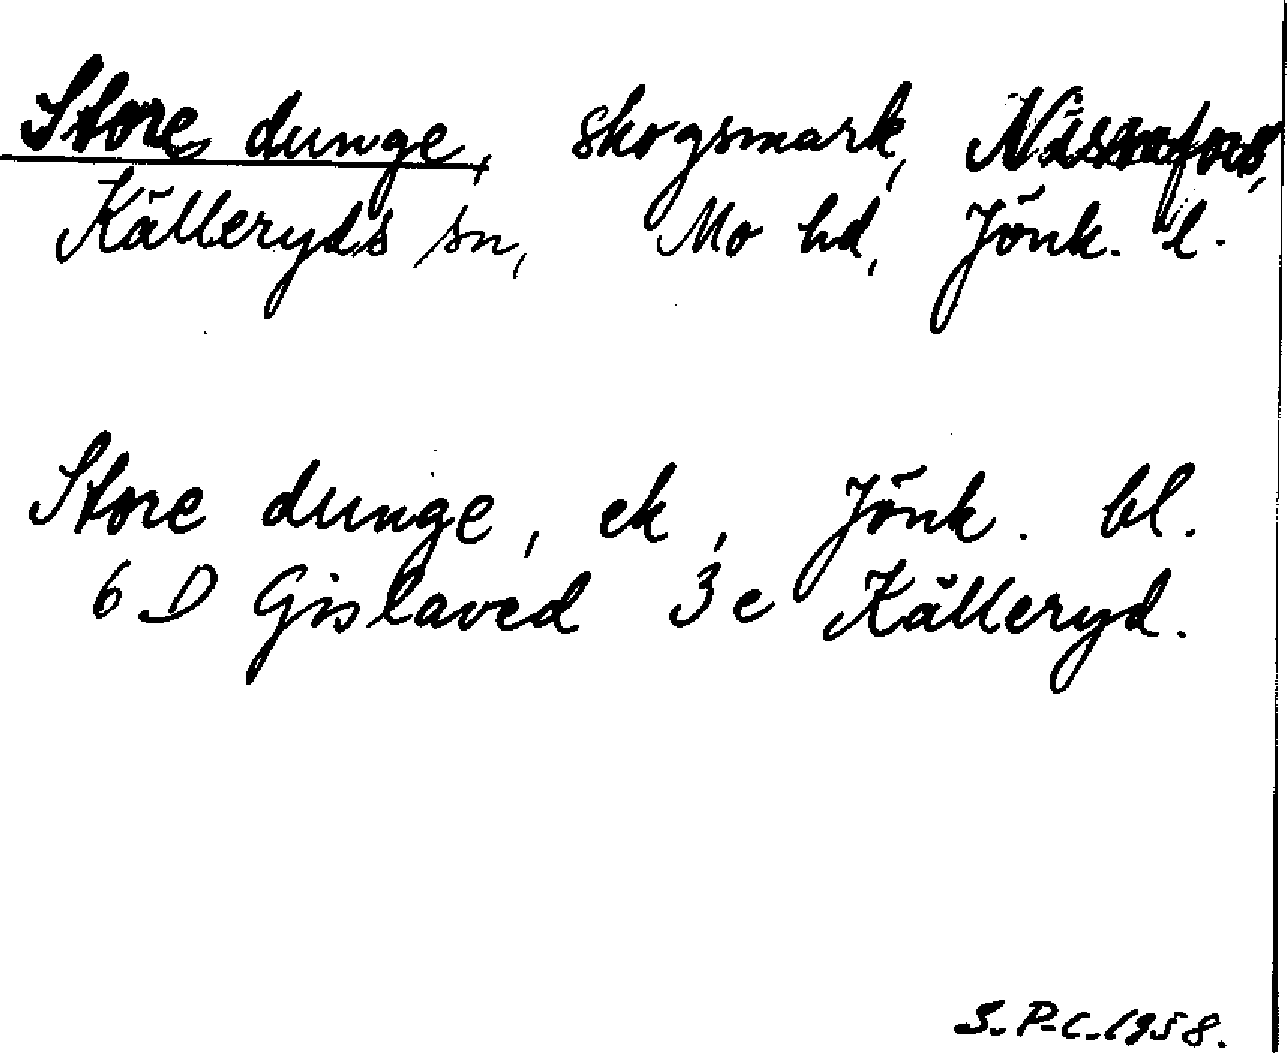 Store dunge, skogsmark, Nissafors,
Källeryds sn, Mo hd, Jönk. l.
Store dunge, ek, Jönk. bl.
6 D Gislaved 3 e Källeryd.
S.P.C. 1958.